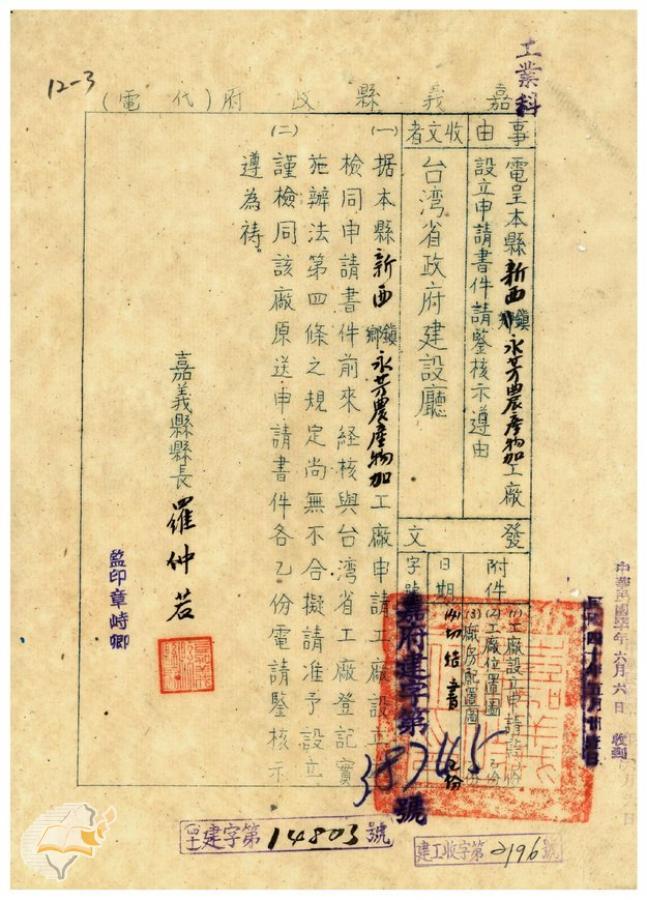 工業科
12-3
嘉義縣政府（代電）
事由
電呈本縣新西鄉鎮永芳農產物加工廠
設立申請書件請鑒核示遵由
收文者
台湾省政府建設廳
發文
附件
(1)工廠設立申請書 份
(2)工廠位置圖 份
(3)廠房配置圖 份
(4)切结書 份
日期
字號
嘉府建字第38745號
(一)据本縣新西鄉鎮永芳農產物加工廠申請工廠設立
檢同申請書件前來経核與台湾省工廠登記實
施辦法第四條之規定尚無不合擬請准予設立
(二)謹檢同該廠原送申請書件各乙份電請鑒核示
遵為祷。
嘉義縣縣長羅仲若
監印章峙卿
中華民國 年六月六日 收到
建字第14803號
建工收字第2196號